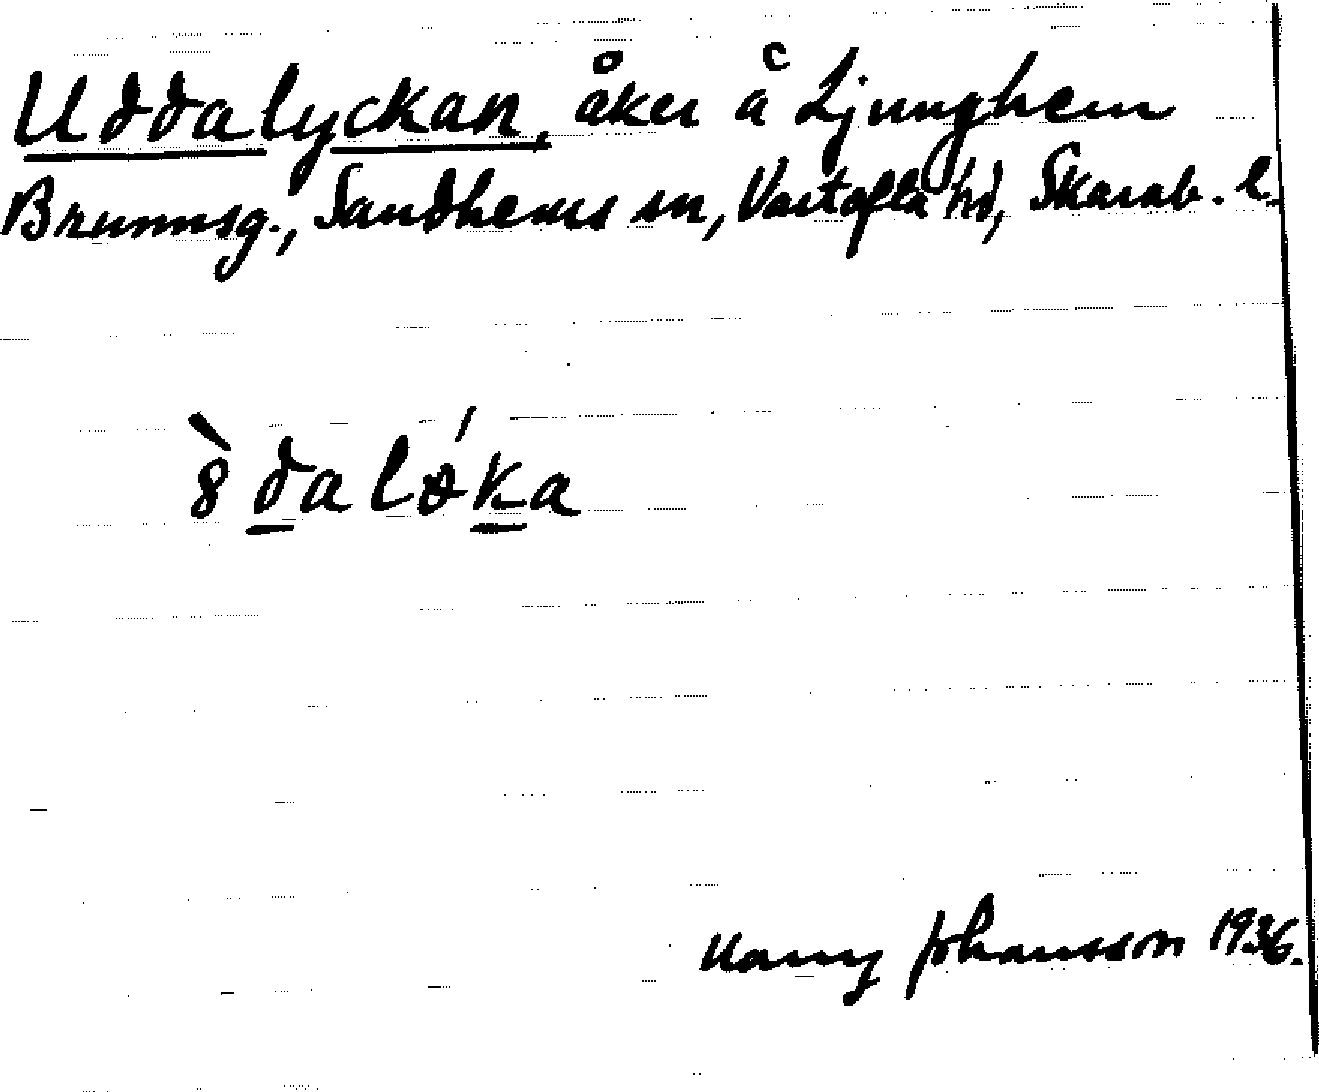 Uddalyckan, åker å Ljunghem
Brunnsg., Sandhems sn, Vartofta hd, Skarab. l.
8̀ dalǿka
Harry Johansson 1936.